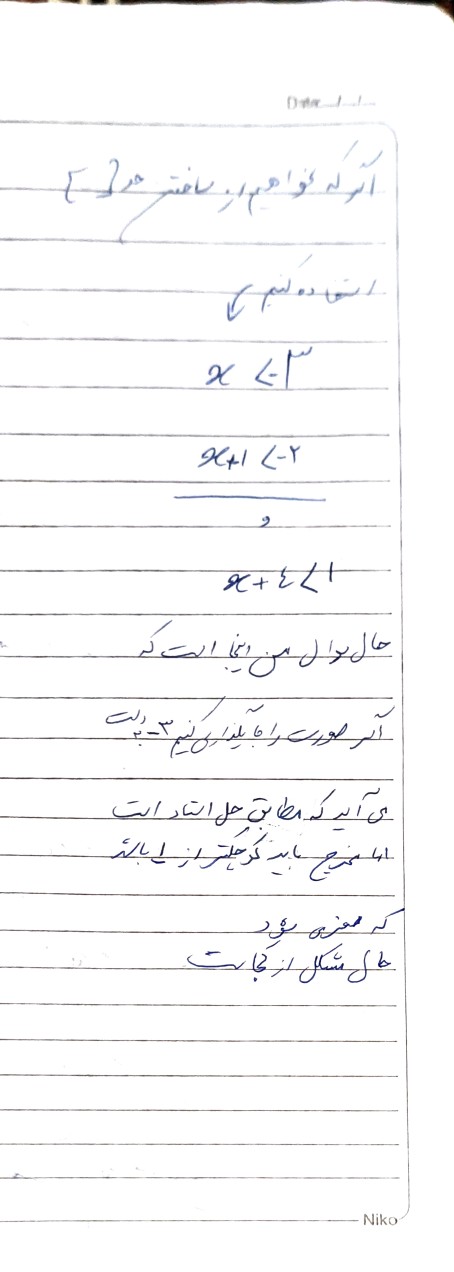 Date: / /
اگر که بخواهیم از ساختن حد [ ]
استفاده کنیم
x < -۳
x+1 < -۲
و
x + ٤ < 1
حال سوال من اینجا است که
اگر صورت را جایگذاری کنیم ۳- بدست
می آید که مطابق حل استاد است
اما مخرج باید کوچکتر از 1 باشد
که صفر می شود
حال مشکل از کجاست
Niko